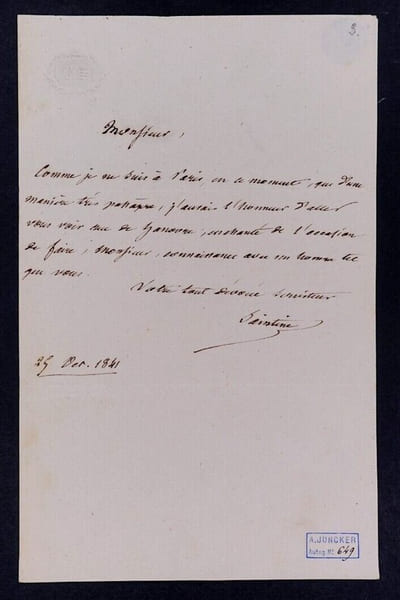 3.
Monsieur,
Comme je ne suis à Paris, en ce moment, que d'une
manière très passagère, j'aurai l'honneur d'aller
vous voir rue de Hanovre, enchanté de l'occasion
de faire, Monsieur, connaissance avec un homme tel
que vous.
Votre tout dévoué serviteur
Saintine
25 Oct. 1841
A. JUNCKER
Autog. No 649